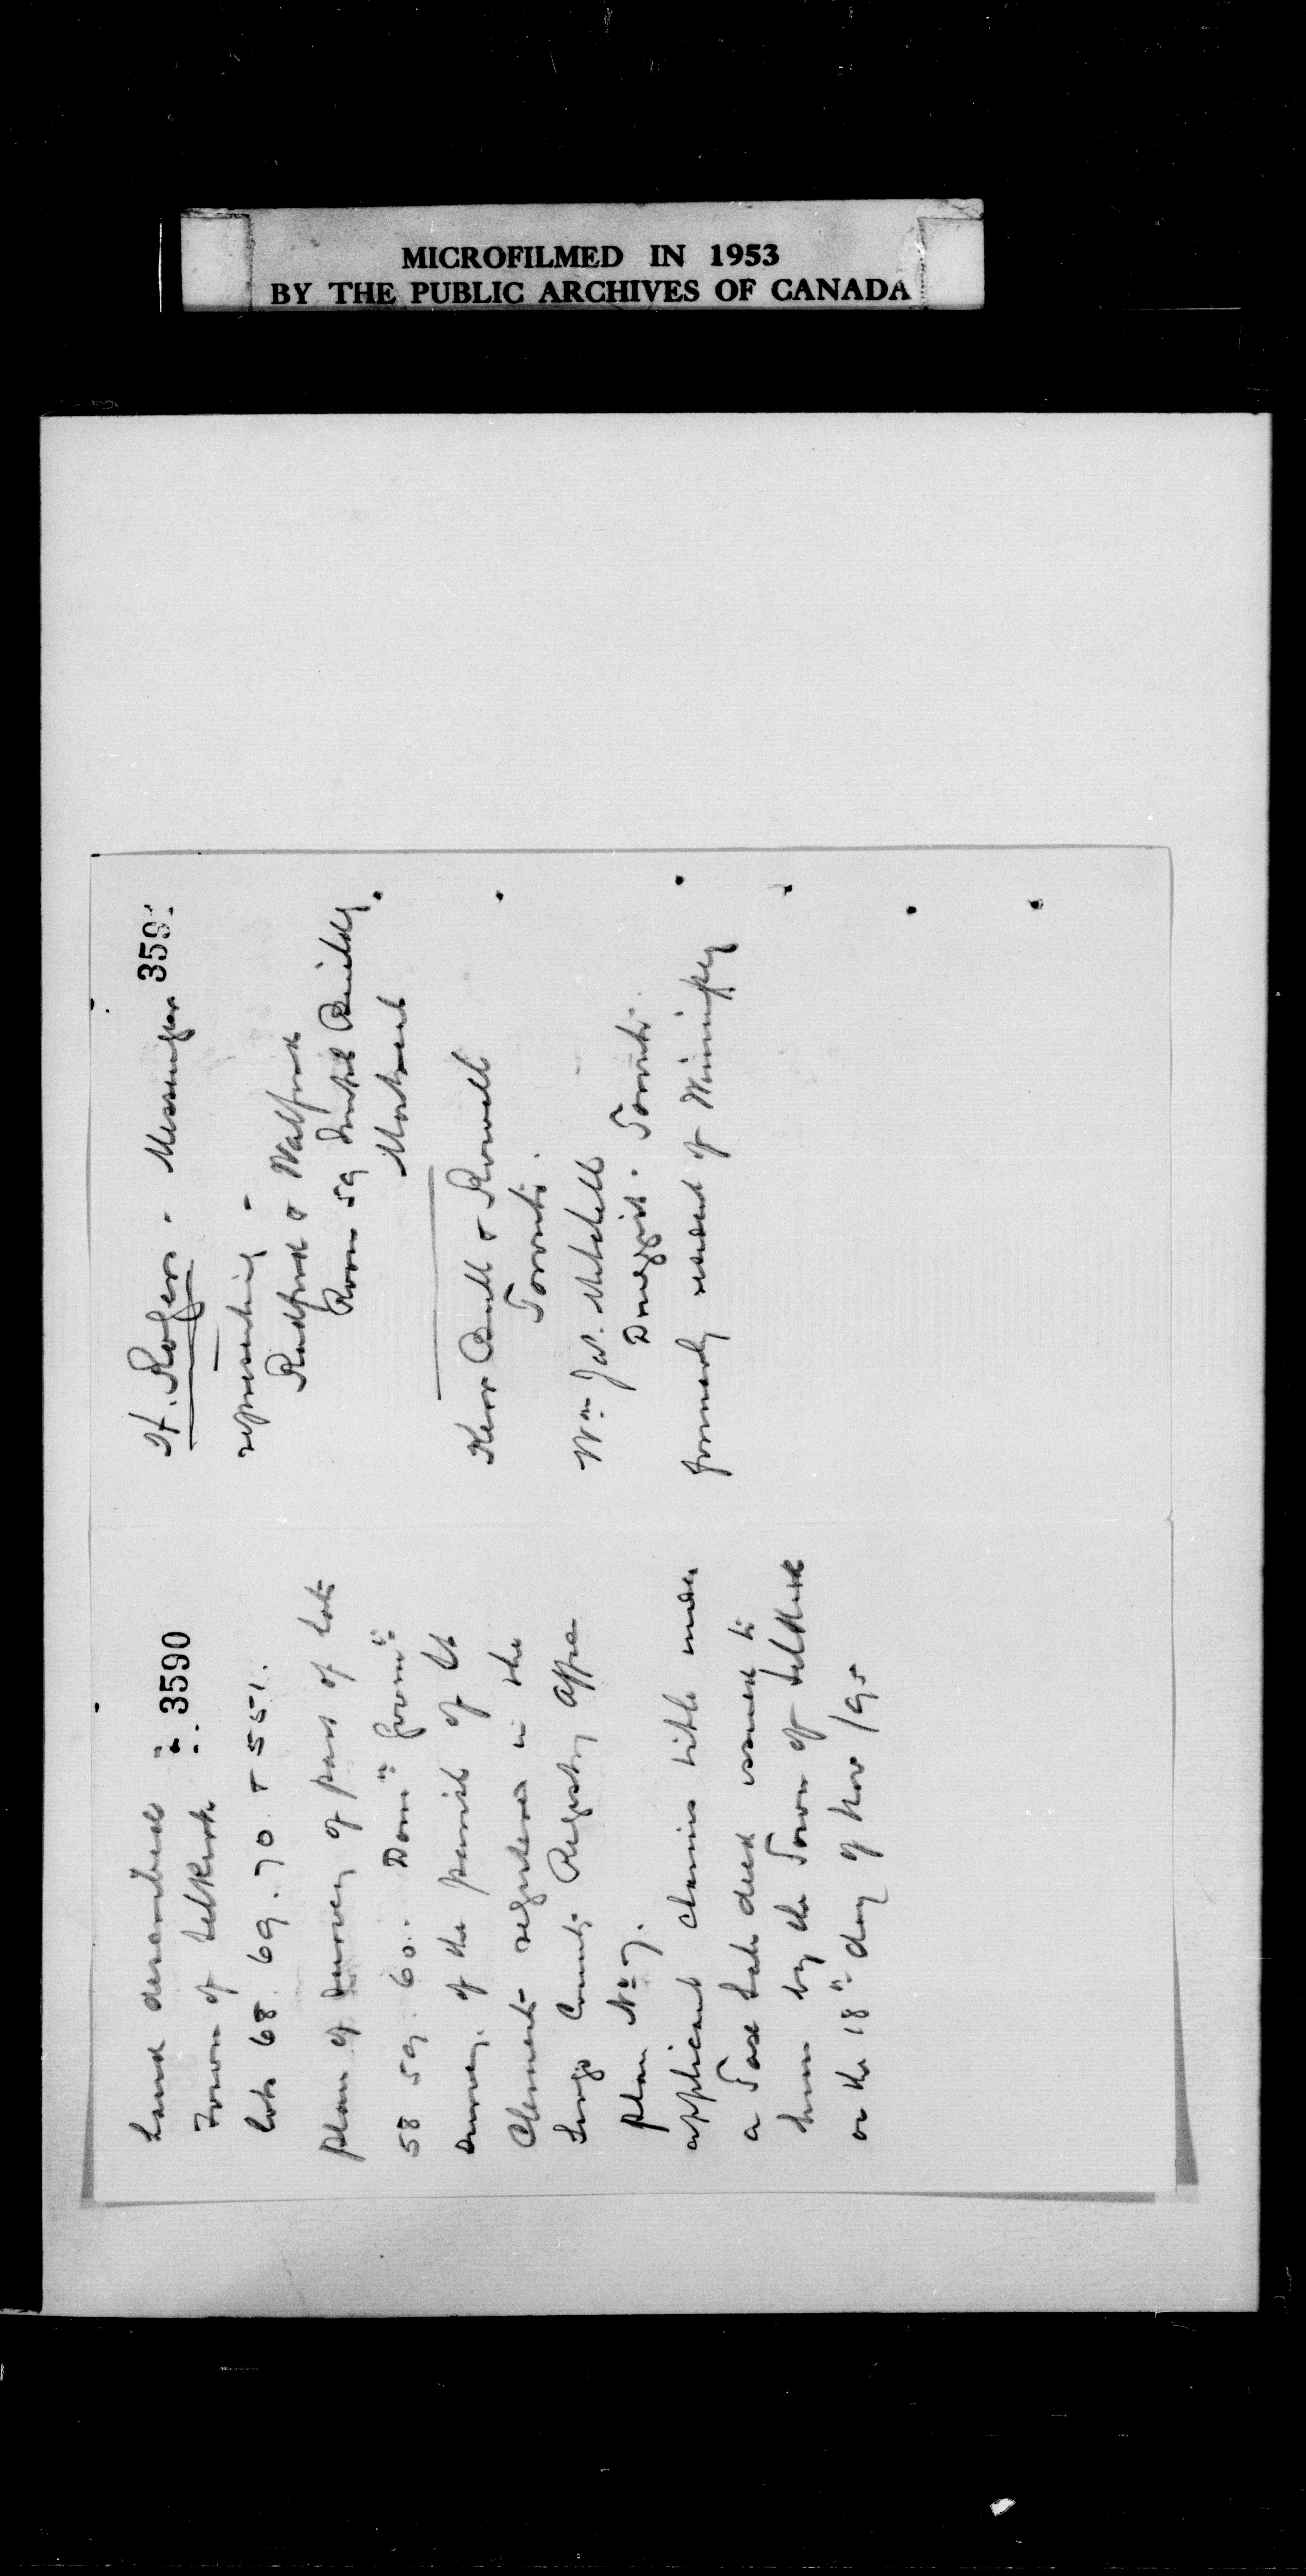 MICROFILMED IN 1953
BY THE PUBLIC ARCHIVES OF CANADA
3590
Land described
Town of Selkirk
lots 68. 69. 70 & 551.
plan of survey of part of lots
58 59. 60. Domn Governt
survey. of the parish of St
Clements registered in the
County Registry Office
plan No 7.
applicant claims title under
a Tax Sale deed issued to
him by the Town of Selkirk
on the 18th day of Nov /95
359
H. Rogers - Messenger
representing -
Radford & Walford
Room 59 Imperial Buildg
Montreal
Kerr Bull & Rowell
Toronto.
Wm Jas. Mitchell
Druggist. Toronto.
formerly resident of Winnipeg